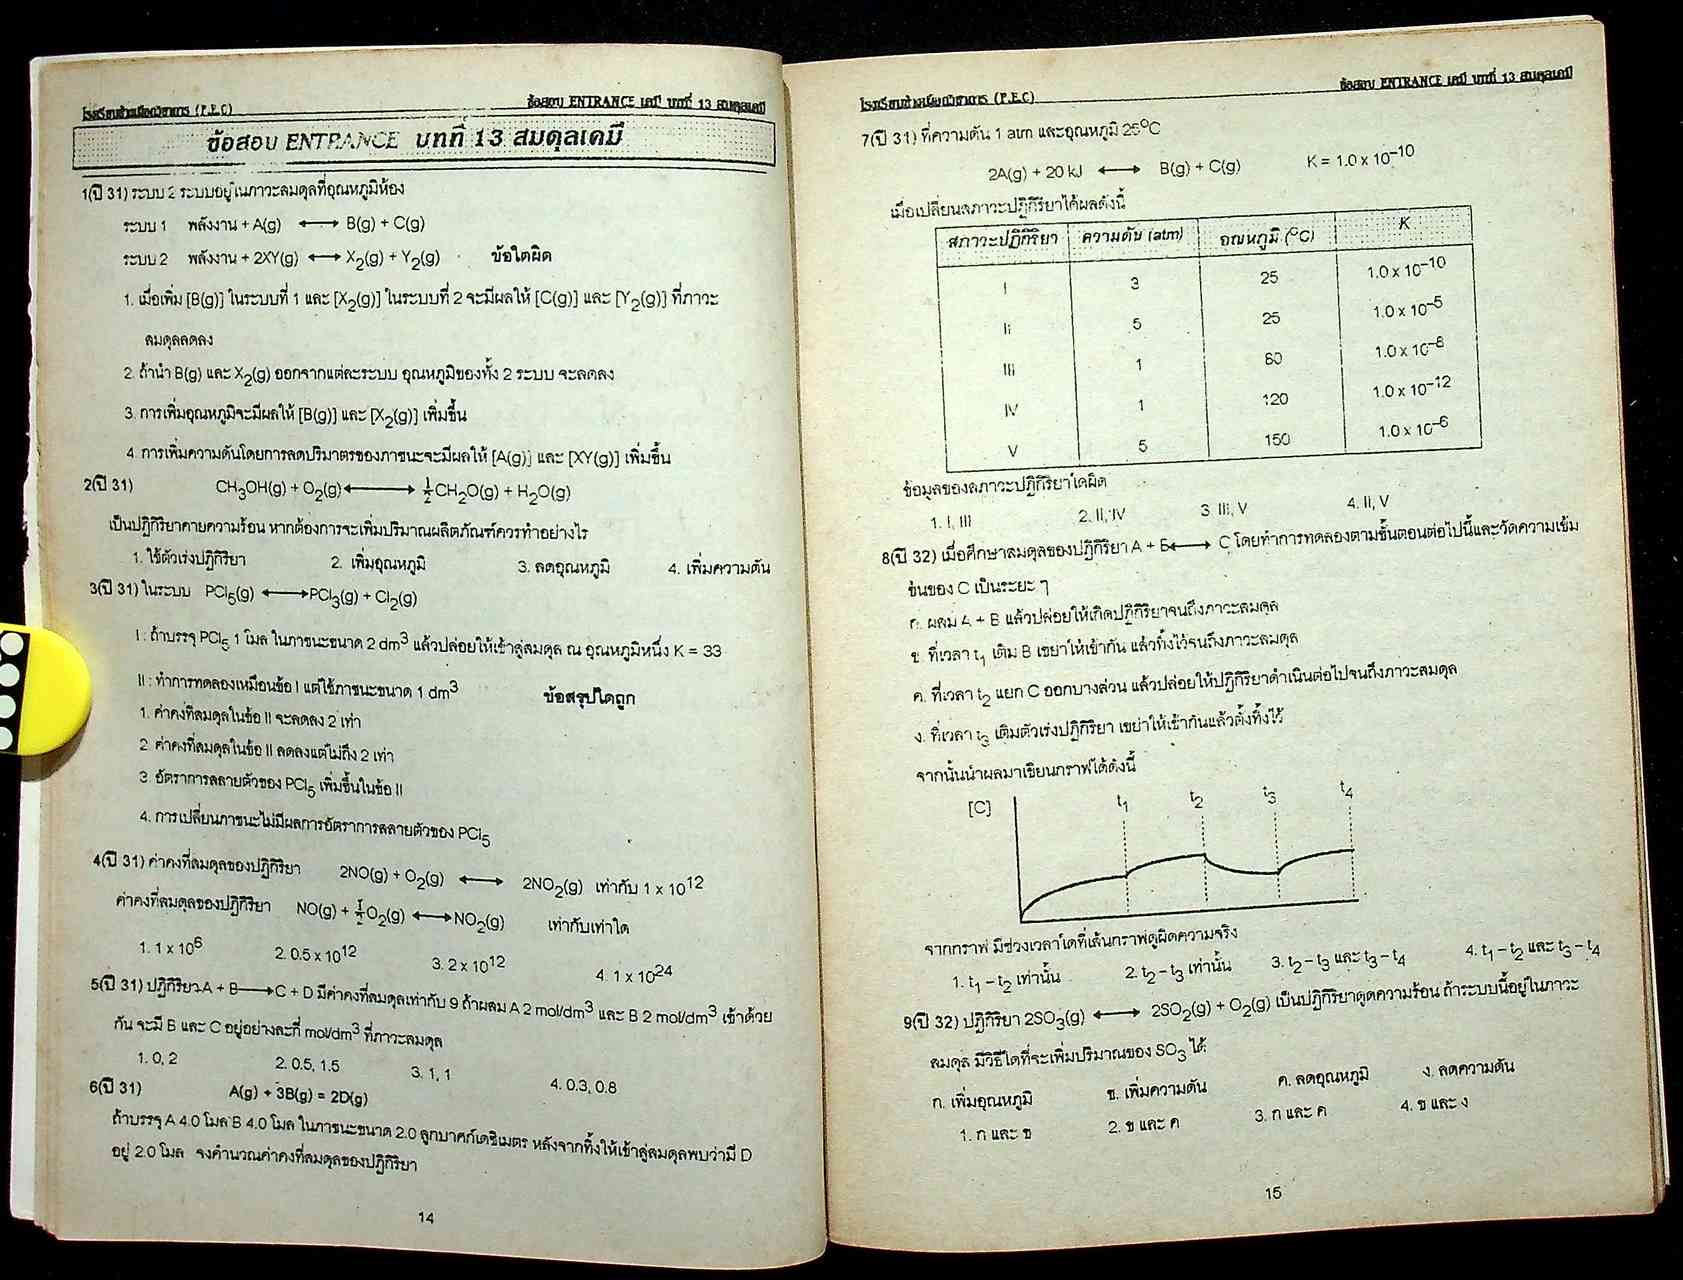 โรงเรียนช้างเผือกวิชาการ (P.E.C) ข้อสอบ ENTRANCE เคมี บทที่ 13 สมดุลเคมี
ข้อสอบ ENTRANCE บทที่ 13 สมดุลเคมี
1(ปี 31) ระบบ 2 ระบบอยู่ในภาวะสมดุลที่อุณหภูมิห้อง
ระบบ 1 พลังงาน + A(g) ⟷ B(g) + C(g)
ระบบ 2 พลังงาน + 2XY(g) ⟷ X2(g) + Y2(g) ข้อใดผิด
1. เมื่อเพิ่ม [B(g)] ในระบบที่ 1 และ [X2(g)] ในระบบที่ 2 จะมีผลให้ [C(g)] และ [Y2(g)] ที่ภาวะ
สมดุลลดลง
2. ถ้านำ B(g) และ X2(g) ออกจากแต่ละระบบ อุณหภูมิของทั้ง 2 ระบบ จะลดลง
3. การเพิ่มอุณหภูมิจะมีผลให้ [B(g)] และ [X2(g)] เพิ่มขึ้น
4. การเพิ่มความดันโดยการลดปริมาตรของภาชนะจะมีผลให้ [A(g)] และ [XY(g)] เพิ่มขึ้น
2(ปี 31) CH3OH(g) + O2(g) ⟷ ½CH2O(g) + H2O(g)
เป็นปฏิกิริยาคายความร้อน หากต้องการจะเพิ่มปริมาณผลิตภัณฑ์ควรทำอย่างไร
1. ใช้ตัวเร่งปฏิกิริยา 2. เพิ่มอุณหภูมิ 3. ลดอุณหภูมิ 4. เพิ่มความดัน
3(ปี 31) ในระบบ PCl5(g) ⟷ PCl3(g) + Cl2(g)
I : ถ้าบรรจุ PCl5 1 โมล ในภาชนะขนาด 2 dm3 แล้วปล่อยให้เข้าสู่สมดุล ณ อุณหภูมิหนึ่ง K = 33
II : ทำการทดลองเหมือนข้อ I แต่ใช้ภาชนะขนาด 1 dm3 ข้อสรุปใดถูก
1. ค่าคงที่สมดุลในข้อ II จะลดลง 2 เท่า
2. ค่าคงที่สมดุลในข้อ II ลดลงแต่ไม่ถึง 2 เท่า
3. อัตราการสลายตัวของ PCl5 เพิ่มขึ้นในข้อ II
4. การเปลี่ยนภาชนะไม่มีผลการอัตราการสลายตัวของ PCl5
4(ปี 31) ค่าคงที่สมดุลของปฏิกิริยา 2NO(g) + O2(g) ⟷ 2NO2(g) เท่ากับ 1 x 10^12
ค่าคงที่สมดุลของปฏิกิริยา NO(g) + ½O2(g) ⟷ NO2(g) เท่ากับเท่าใด
1. 1 x 10^6 2. 0.5 x 10^12 3. 2 x 10^12 4. 1 x 10^24
5(ปี 31) ปฏิกิริยา A + B ⟶ C + D มีค่าคงที่สมดุลเท่ากับ 9 ถ้าผสม A 2 mol/dm3 และ B 2 mol/dm3 เข้าด้วย
กัน จะมี B และ C อยู่อย่างละกี่ mol/dm3 ที่ภาวะสมดุล
1. 0, 2 2. 0.5, 1.5 3. 1, 1 4. 0.3, 0.8
6(ปี 31) A(g) + 3B(g) = 2D(g)
ถ้าบรรจุ A 4.0 โมล B 4.0 โมล ในภาชนะขนาด 2.0 ลูกบาศก์เดซิเมตร หลังจากทิ้งให้เข้าสู่สมดุลพบว่ามี D
อยู่ 2.0 โมล จงคำนวณค่าคงที่สมดุลของปฏิกิริยา
14
โรงเรียนช้างเผือกวิชาการ (P.E.C) ข้อสอบ ENTRANCE เคมี บทที่ 13 สมดุลเคมี
7(ปี 31) ที่ความดัน 1 atm และอุณหภูมิ 25°C
2A(g) + 20 kJ ⟷ B(g) + C(g) K = 1.0 x 10^-10
เมื่อเปลี่ยนสภาวะปฏิกิริยาได้ผลดังนี้
สภาวะปฏิกิริยา ความดัน (atm) อุณหภูมิ (°C) K
I 3 25 1.0 x 10^-10
II 5 25 1.0 x 10^-5
III 1 60 1.0 x 10^-8
IV 1 120 1.0 x 10^-12
V 5 150 1.0 x 10^-6
ข้อมูลของสภาวะปฏิกิริยาใดผิด
1. I, III 2. II, IV 3. III, V 4. II, V
8(ปี 32) เมื่อศึกษาสมดุลของปฏิกิริยา A + B ⟷ C โดยทำการทดลองตามขั้นตอนต่อไปนี้และวัดความเข้ม
ข้นของ C เป็นระยะ ๆ
ก. ผสม A + B แล้วปล่อยให้เกิดปฏิกิริยาจนถึงภาวะสมดุล
ข. ที่เวลา t1 เติม B เขย่าให้เข้ากัน แล้วทิ้งไว้จนถึงภาวะสมดุล
ค. ที่เวลา t2 แยก C ออกบางส่วน แล้วปล่อยให้ปฏิกิริยาดำเนินต่อไปจนถึงภาวะสมดุล
ง. ที่เวลา t3 เติมตัวเร่งปฏิกิริยา เขย่าให้เข้ากันแล้วตั้งทิ้งไว้
จากนั้นนำผลมาเขียนกราฟได้ดังนี้
[C] t1 t2 t3 t4
จากกราฟ มีช่วงเวลาใดที่เส้นกราฟดูผิดความจริง
1. t1 – t2 เท่านั้น 2. t2 – t3 เท่านั้น 3. t2 – t3 และ t3 – t4 4. t1 – t2 และ t3 – t4
9(ปี 32) ปฏิกิริยา 2SO3(g) ⟷ 2SO2(g) + O2(g) เป็นปฏิกิริยาดูดความร้อน ถ้าระบบนี้อยู่ในภาวะ
สมดุล มีวิธีใดที่จะเพิ่มปริมาณของ SO3 ได้
ก. เพิ่มอุณหภูมิ ข. เพิ่มความดัน ค. ลดอุณหภูมิ ง. ลดความดัน
1. ก และ ข 2. ข และ ค 3. ก และ ค 4. ข และ ง
15